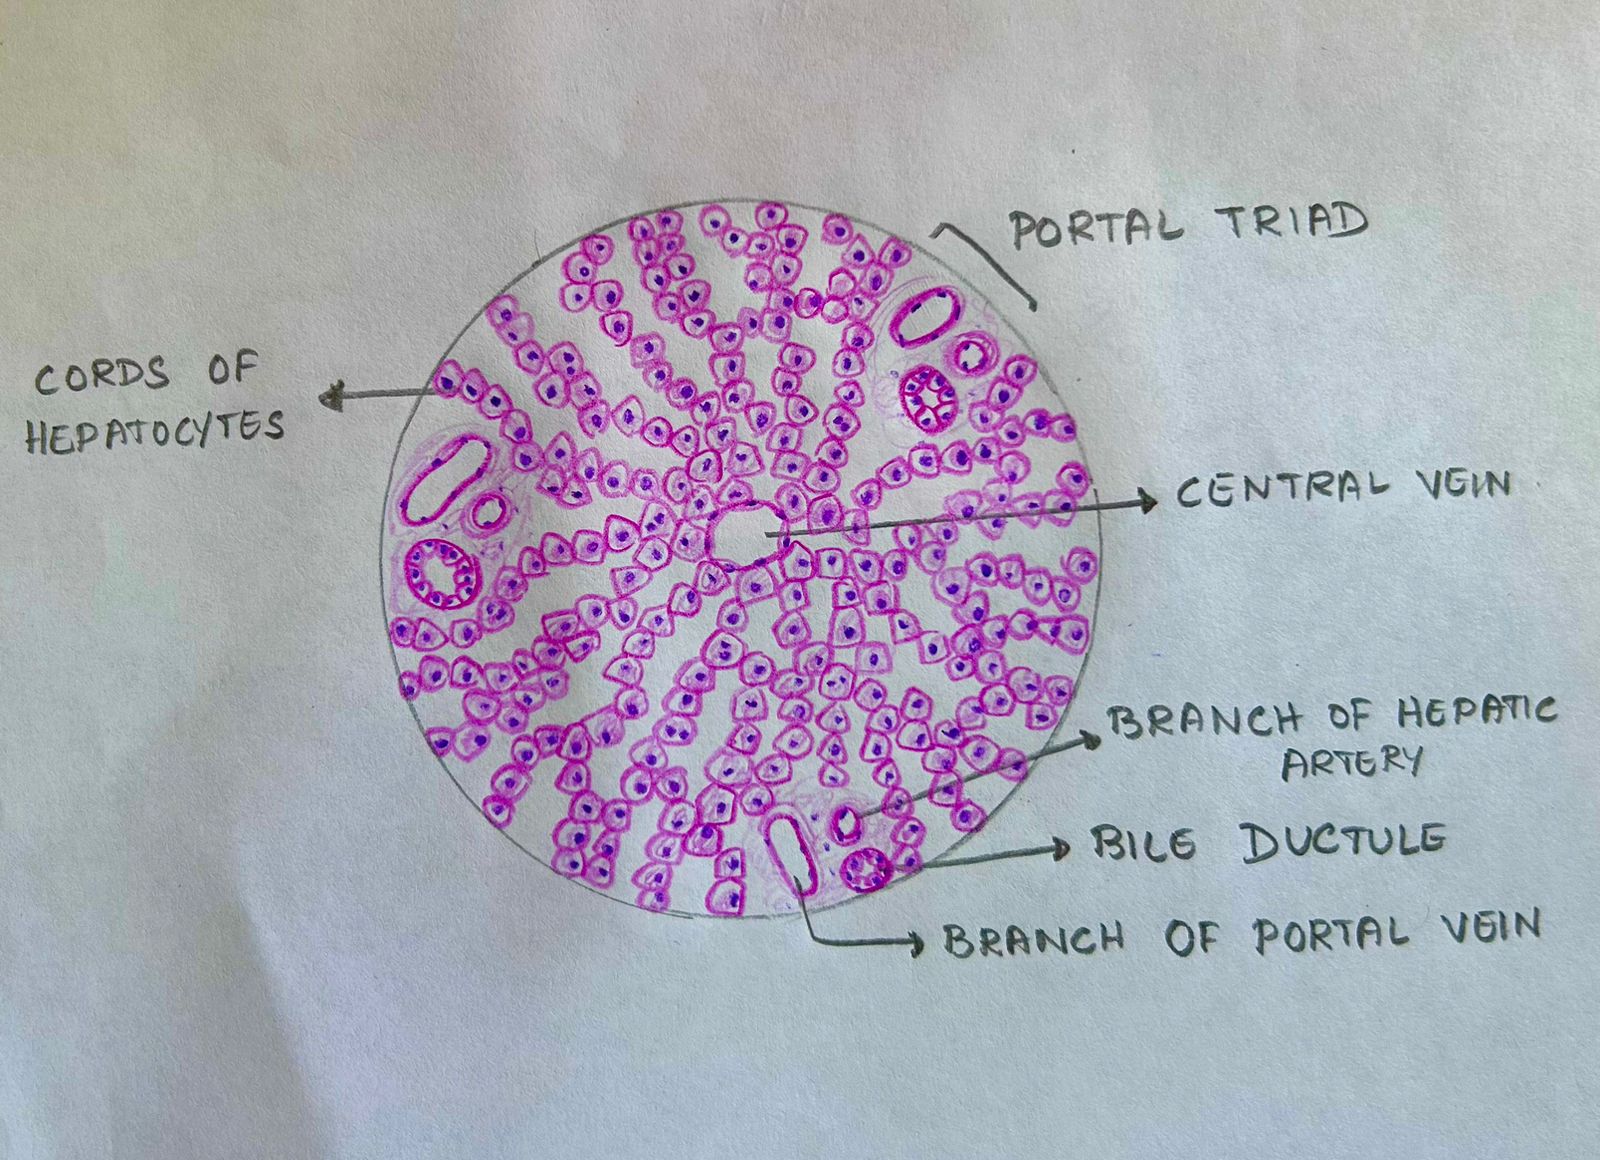 PORTAL TRIAD
CORDS OF
HEPATOCYTES
CENTRAL VEIN
BRANCH OF HEPATIC
ARTERY
BILE DUCTULE
BRANCH OF PORTAL VEIN